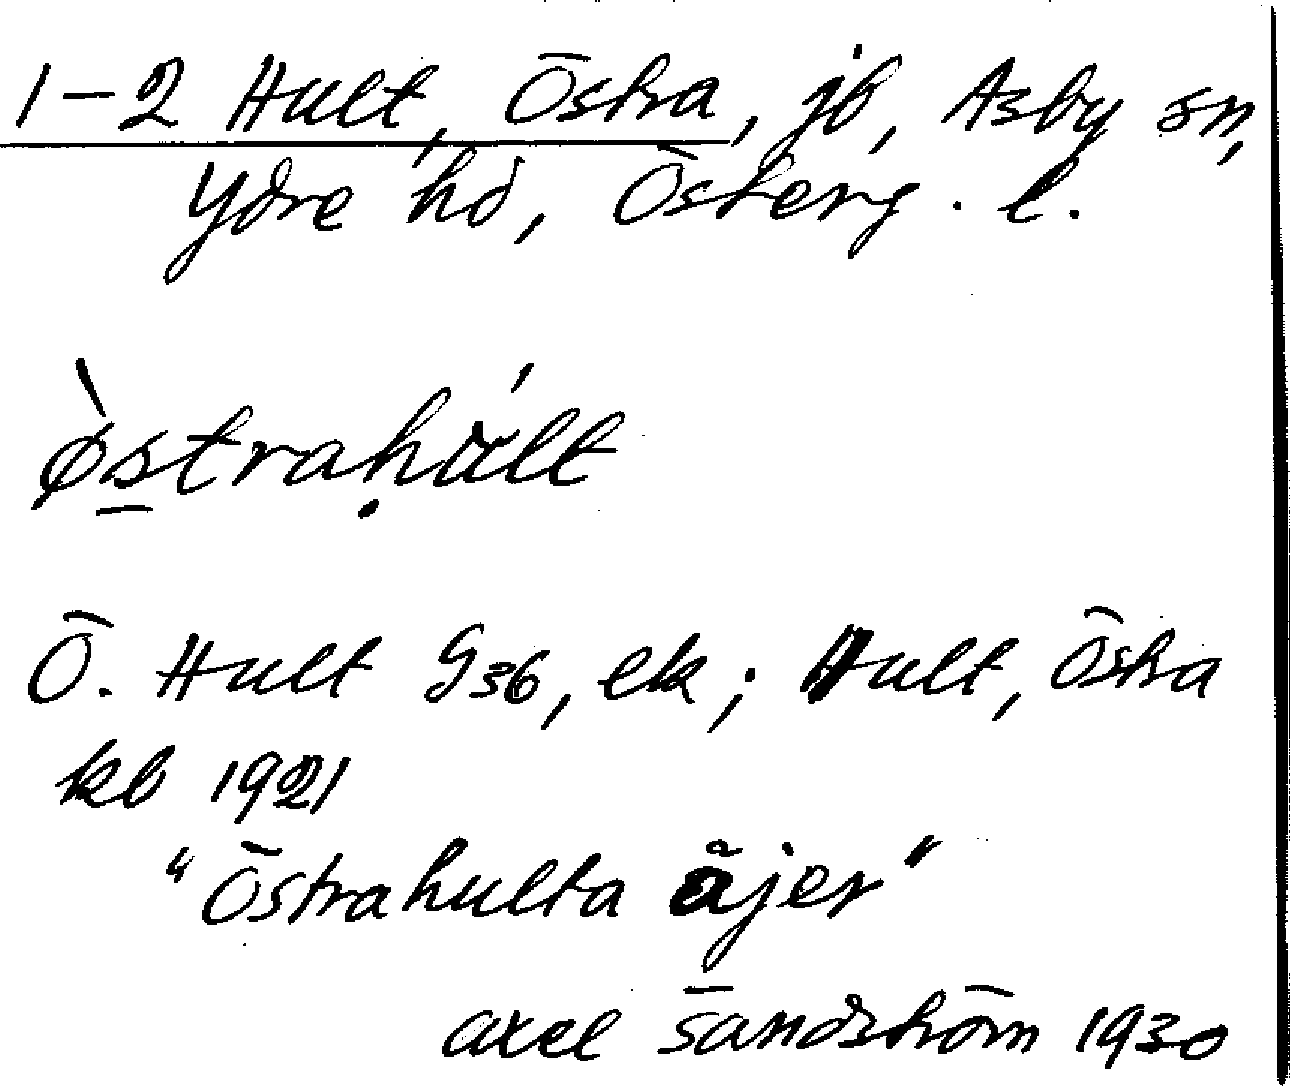 1-2 Hult, Östra, jb, Asby sn,
Ydre hd, Österg. l.
ø̀s̲traḥúlt
Ö. Hult G36, ek; Hult, Östra
kb 1921
"Östrahulta åjer"
Axel Sandström 1930